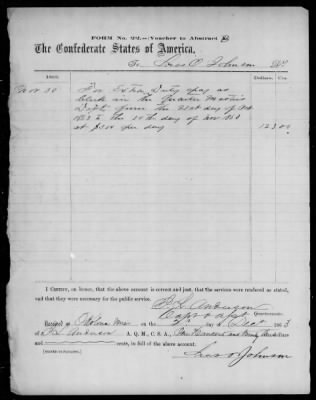 FORM No. 22.—(Voucher to Abstract
The Confederate States of America,
To O. Johnson Dr.
1863. Dollars. Cts.
Nov 30 For Extra Duty pay as
clerk in the Quarter Masters
Dept. from the 21st day of Oct
1863 to the 30th day of Nov 1863
at $3.00 per day 123.00
I CERTIFY, on honor, that the above account is correct and just, that the services were rendered as stated,
and that they were necessary for the public service.
Anderson
Capt & A.Q.M. Quartermaster.
Received at Okolona Miss on the day of Dec 1863
of Anderson A. Q. M., C. S. A., One Hundred and Twenty three dollars
cents, in full of the above account.
(SIGNED IN DUPLICATE.)
O Johnson